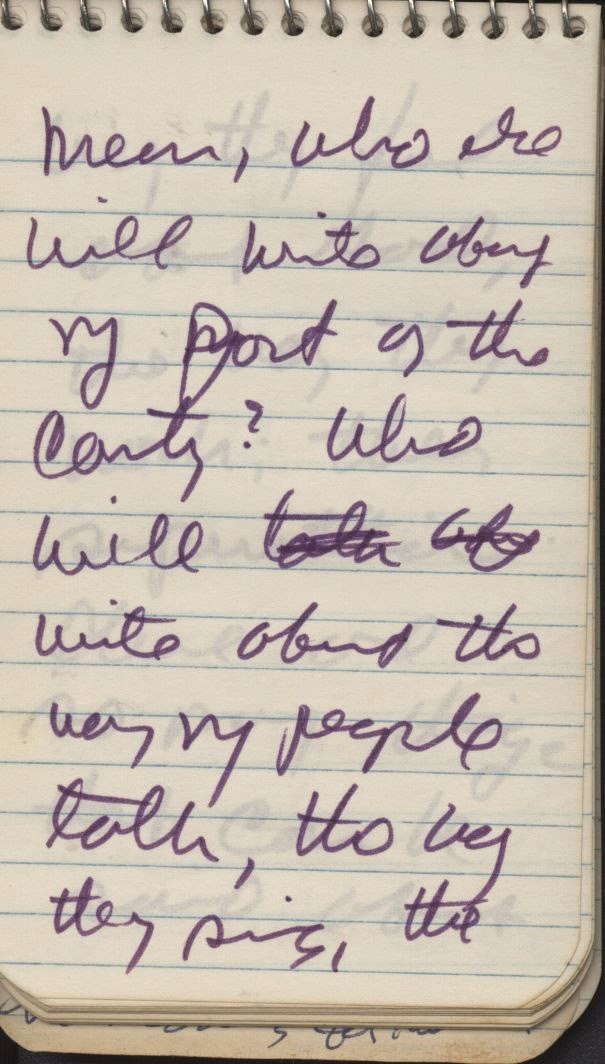 mean, who else
will write about
my part of the
County? Who
will talk
write about the
way my people
talk, the way
they sing, the